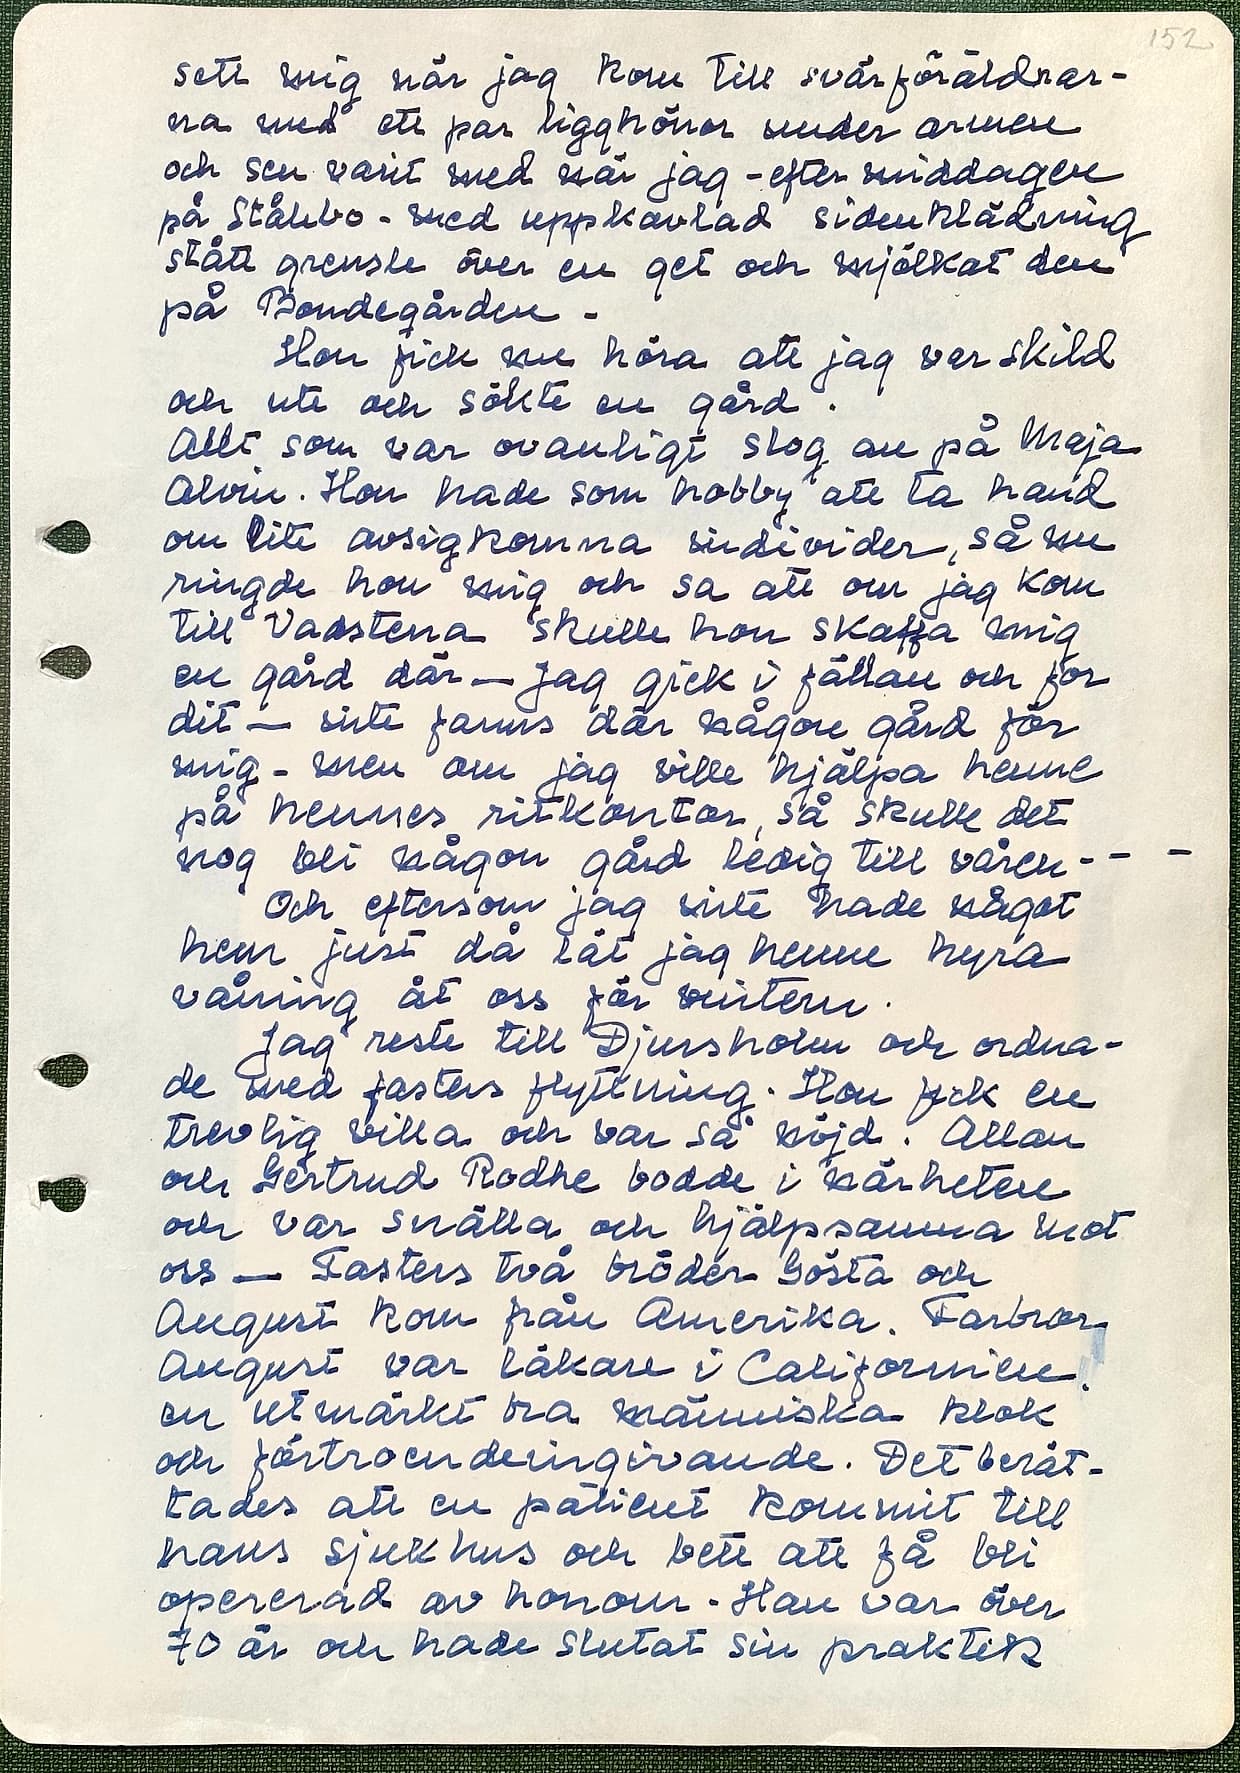 152
sett mig när jag kom till svärföräldrar-
na med ett par ligghönor under armen
och sen varit med när jag - efter middagen
på Ståhbo - med uppkavlad sidenklädning
stått grensle över en get och mjölkat den
på Bondegården -
Hon fick nu höra att jag var skild
och ute och sökte en gård.
Allt som var ovanligt slog an på Maja
Alvin. Hon hade som hobby att ta hand
om lite avsigkomna individer, så nu
ringde hon mig och sa att om jag kom
till Vadstena skulle hon skaffa mig
en gård där — Jag gick i fällan och for
dit — inte fanns där någon gård för
mig - men om jag ville hjälpa henne
på hennes ritkontor, så skulle det
nog bli någon gård ledig till våren - - -
Och eftersom jag inte hade något
hem just då lät jag henne hyra
våning åt oss för vintern.
Jag reste till Djursholm och ordna-
de med fasters flyttning. Hon fick en
trevlig villa och var så nöjd. Allan
och Gertrud Rodhe bodde i närheten
och var snälla och hjälpsamma mot
oss — Fasters två bröder Gösta och
August kom från Amerika. Farbror
August var läkare i Californien.
en utmärkt bra människa klok
och förtroendeingivande. Det berät-
tades att en patient kommit till
hans sjukhus och bett att få bli
opererad av honom. Han var över
70 år och hade slutat sin praktik